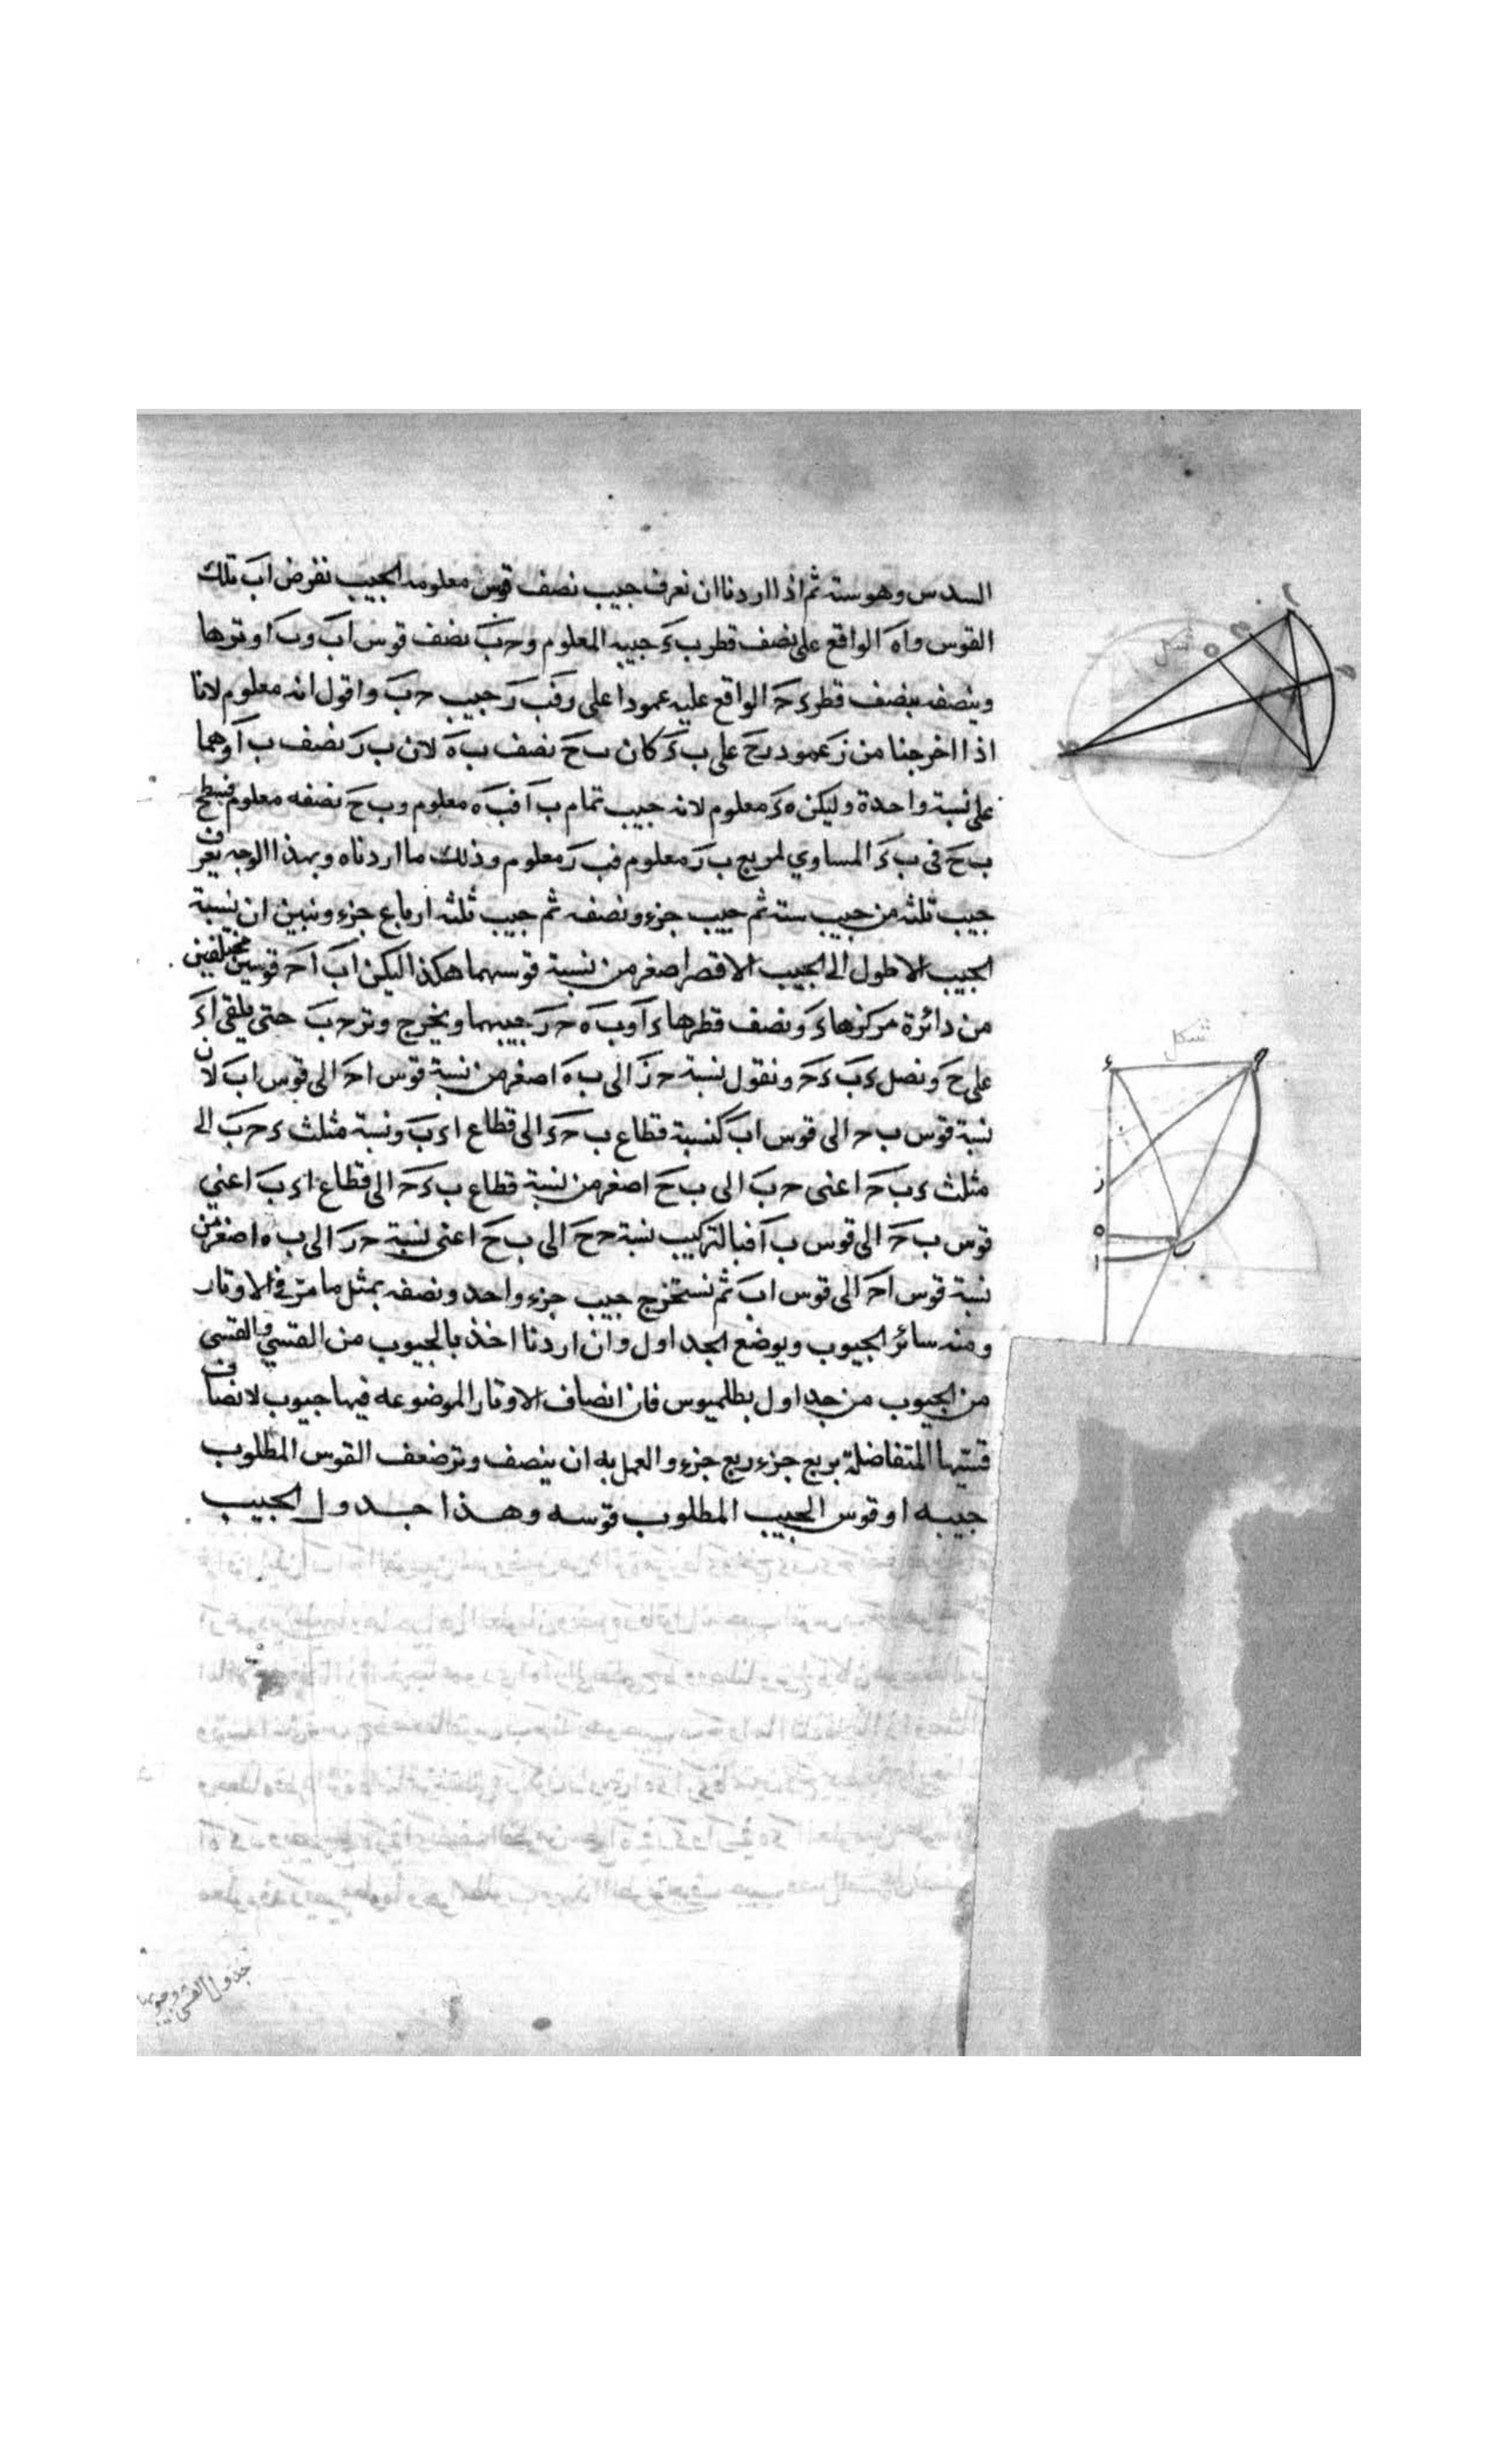 السدس وهو ستة ثم اذا اردنا ان نعرف جيب نصف قوس معلومه الجيب نفرض اب تلك
القوس واه الواقع على نصف قطر ب ء جيبه المعلوم و حب نصف قوس اب وب ا وترها
وينصفه بنصف قطر ء ح الواقع عليه عمودا على ر فب ر جيب حب واقول انه معلوم لانا
اذا اخرجنا من ز عمود رح على ب ء كان ب ح نصف ب ه لان ب ر نصف ب ا وهما
على نسبة واحدة وليكن ه ء معلوم لانه جيب تمام ب ا فب ه معلوم وب ح نصفه معلوم فسطح
ب ح فى ب ء المساوي لمربع ب ر معلوم فب ر معلوم وذلك ما اردناه وبهذا الوجه يعرف
جيب ثلثه من جيب ستة ثم جيب جزء ونصفه ثم جيب ثلثه ارباع جزء ونبين ان نسبة
الجيب الاطول الى الجيب الاقصر اصغر من نسبة قوسهما هكذا ليكن اب اح قوسين مختلفين
من دائرة مركزها ء ونصف قطرها ء ا وب ه ح ر جيبيهما ويخرج وتر ح ب حتى يلقى ا ء
على ح ونصل ء ب ء ح ونقول نسبة ح ز الى ب ه اصغر من نسبة قوس اح الى قوس اب لان
نسبة قوس ب ح الى قوس اب كنسبة قطاع ب ح ء الى قطاع ا ء ب ونسبة مثلث ء ح ب الى
مثلث ء ب ح اعنى ح ب الى ب ح اصغر من نسبة قطاع ب ء ح الى قطاع ا ء ب اعني
قوس ب ح الى قوس ب ا فبالتركيب نسبة ح ح الى ب ح اعنى نسبة ح ر الى ب ه اصغر من
نسبة قوس اح الى قوس اب ثم نستخرج جيب جزء واحد ونصفه بمثل ما مر فى الاوتار
ومنه سائر الجيوب ويوضع الجداول وان اردنا اخذنا بالجيوب من القسي والقسى
من الجيوب من جداول بطلميوس فان انصاف الاوتار الموضوعه فيها جيوب لانصاف
قسيها المتفاضلة بربع جزء ربع جزء والعمل به ان ينصف وتر ضعف القوس المطلوب
جيبه او قوس الجيب المطلوب قوسه وهذا جدول الجيب
شكل
شكل
جدول القسي وجيوبها